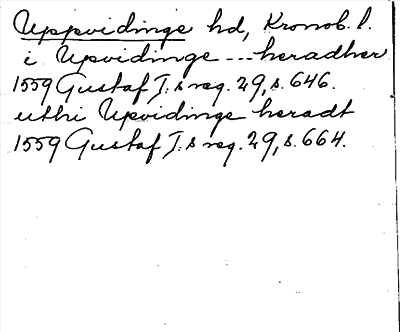 Uppvidinge hd, Kronob. l.
i Upvidinge --- heradher
1559 Gustaf I:s reg. 29, s. 646.
uthi Upvidinge heradt
1559 Gustaf I:s reg. 29, s. 664.